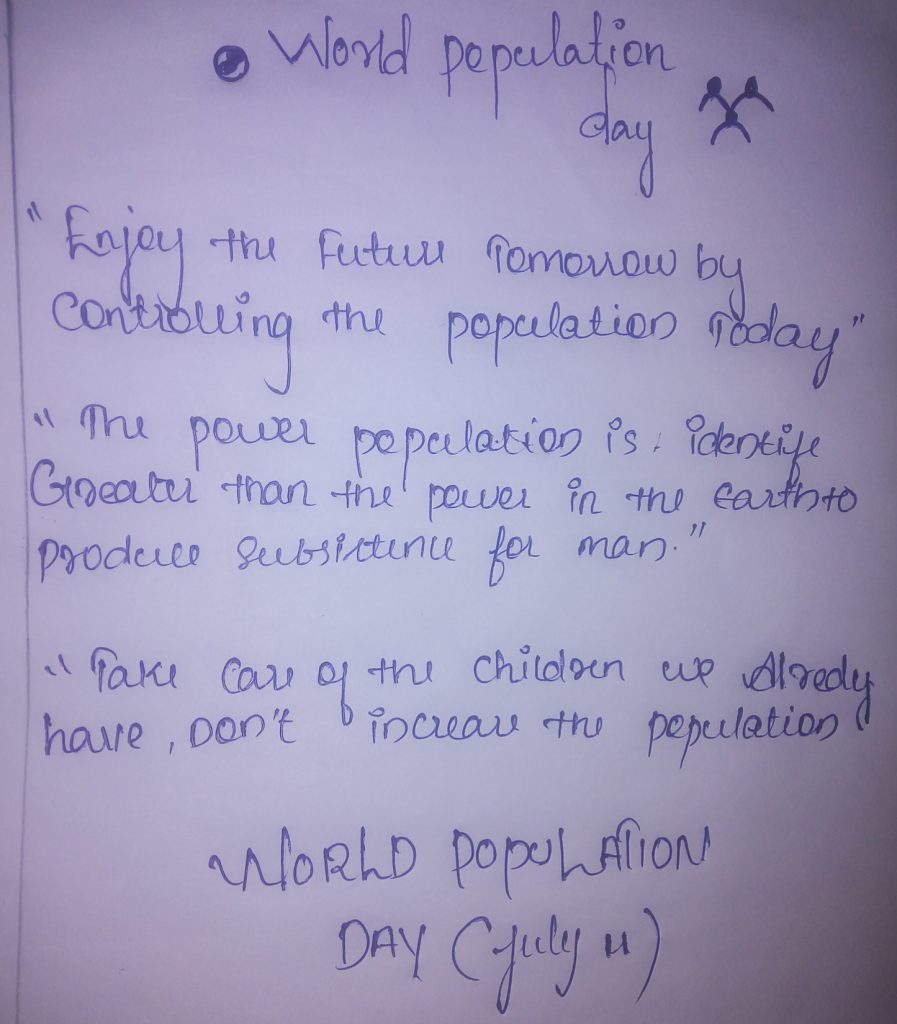 World population
day
"Enjoy the Future Tomorrow by
Controlling the population Today"
"The power population is : identife
Greater than the power in the earth to
produce Subsistence for man."
"Take Care of the children we Already
have, Don't increase the population
WORLD POPULATION
DAY (July 11)